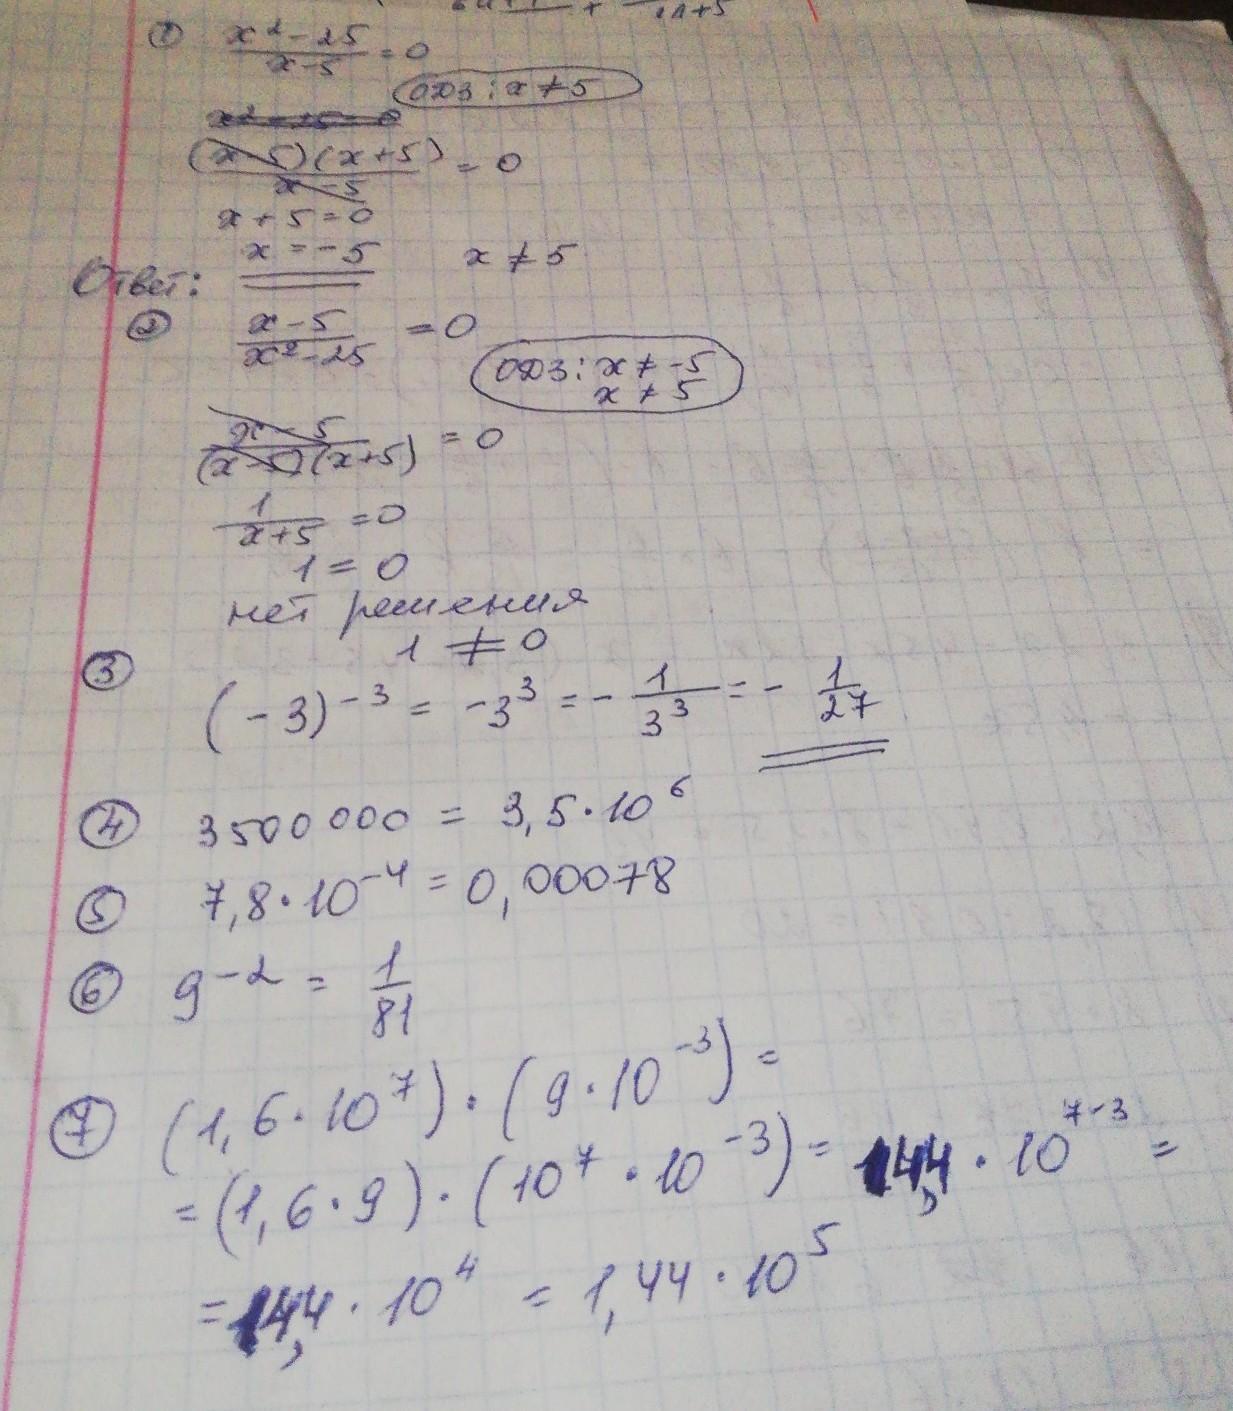 ① x² - 25 / x - 5 = 0
ОДЗ: x ≠ 5
x² - 25 = 0
(x - 5)(x + 5) / x - 5 = 0
x + 5 = 0
x = -5 x ≠ 5
Ответ:
② x - 5 / x² - 25 = 0
ОДЗ: x ≠ -5
x ≠ 5
x - 5 / (x - 5)(x + 5) = 0
1 / x + 5 = 0
1 = 0
нет решения
1 ≠ 0
③ (-3)⁻³ = -3³ = - 1 / 3³ = - 1 / 27
④ 3500 000 = 3,5 · 10⁶
⑤ 7,8 · 10⁻⁴ = 0,00078
⑥ 9⁻² = 1 / 81
⑦ (1,6 · 10⁷) · (9 · 10⁻³) =
= (1,6 · 9) · (10⁷ · 10⁻³) = 14,4 · 10⁷⁻³ =
= 14,4 · 10⁴ = 1,44 · 10⁵